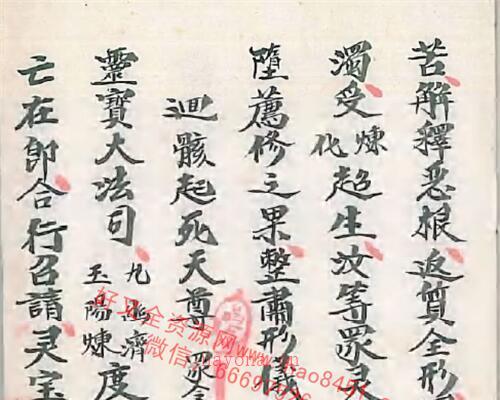 苦解釋恶根返質全形
濁受煉化超生汝等眾灵
墮薦修之果整肅形儀
迴骸起死天尊眾
靈寶大法司九幽濟玉陽煉度
亡在即合行召請灵宝
好又全资源网
微信